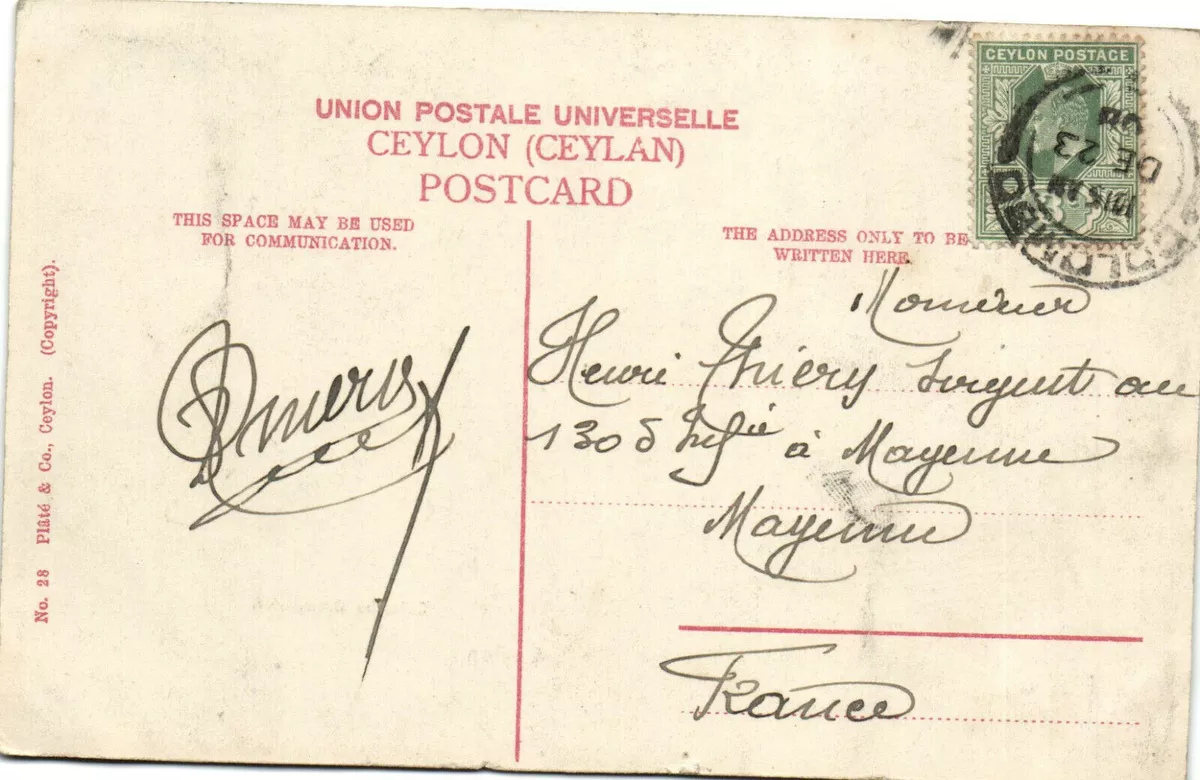 UNION POSTALE UNIVERSELLE
CEYLON (CEYLAN)
POSTCARD
THIS SPACE MAY BE USED
FOR COMMUNICATION.
THE ADDRESS ONLY TO BE
WRITTEN HERE
CEYLON POSTAGE
COLOMBO
DE 23
Monsieur
Henri Thiéry Sergent au
130 d'Infie à Mayenne
Mayenne
France
No. 28 Plâté & Co., Ceylon. (Copyright).